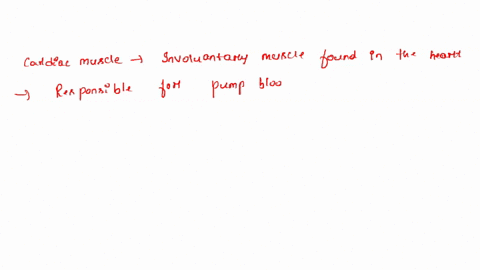 Cardiac muscle → Involuntary muscle found in the heart
→ Responsible for pump bloo